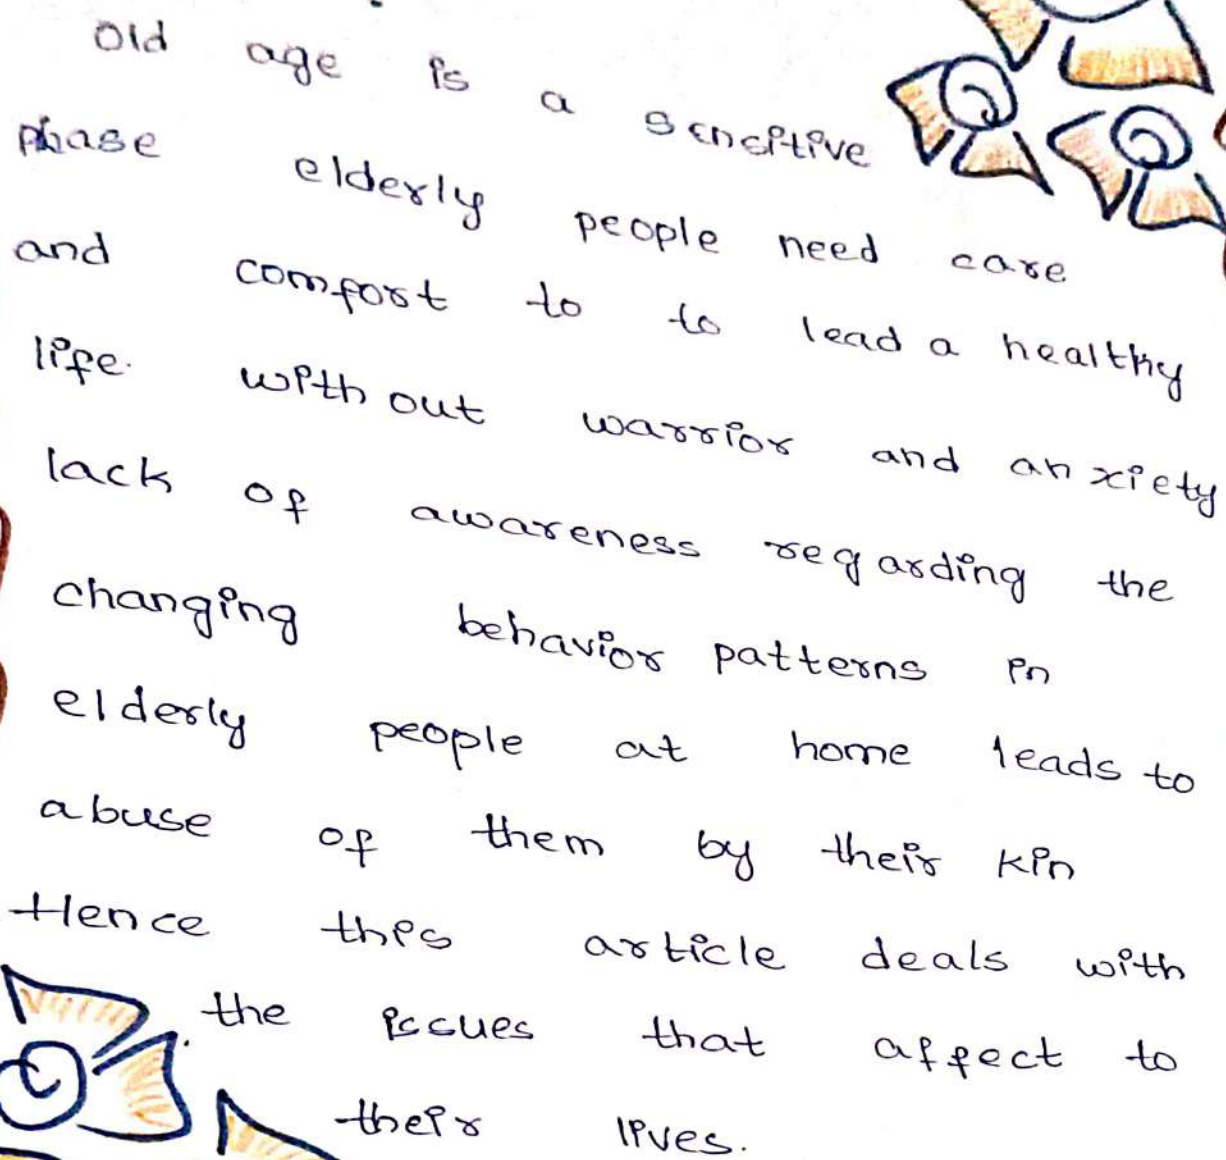 Old age is a sencitive
phase elderly people need care
and comfort to to lead a healthy
life. with out warrior and anxiety
lack of awareness regarding the
changing behavior patterns in
elderly people at home leads to
abuse of them by their kin
Hence this article deals with
the issues that affect to
their lives.